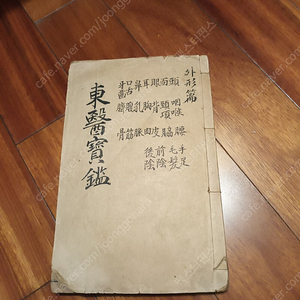 外形篇
頭 面 眼 耳 鼻 口舌 牙齒
咽喉 頸項 背 胸 乳 腹 臍
腰 脇 皮 肉 脉 筋 骨
手足 毛髮 前陰 後陰
東醫寶鑑
cafe.naver.com